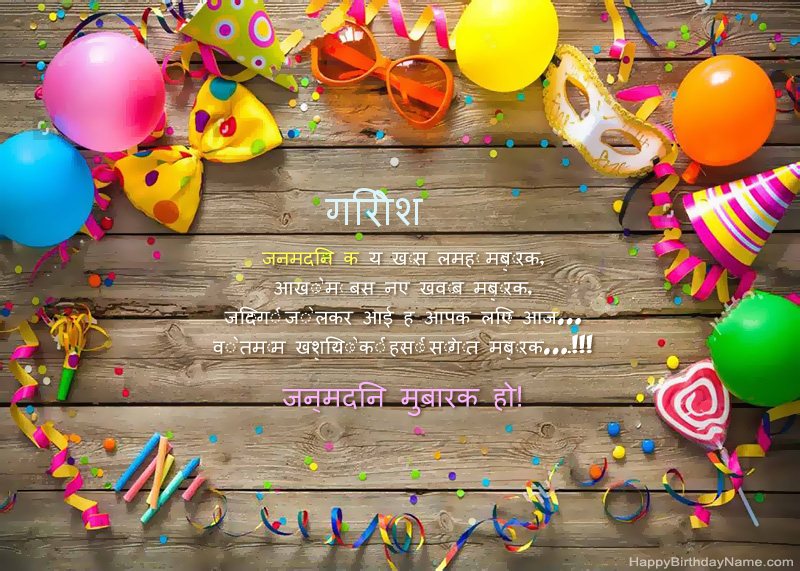 गिरीश
जन्मदिन के ये ख़ास लम्हें मुबारक,
आँखों में बसे नए ख्वाब मुबारक,
जिंदगी जो लेकर आई है आपके लिए आज...
वो तमाम खुशियों की हंसीं सौगात मुबारक...!!!
जन्मदिन मुबारक हो!
HappyBirthdayName.com